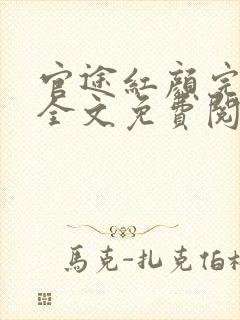 官途紅顏完
全文免費閱
馬克-扎克伯格